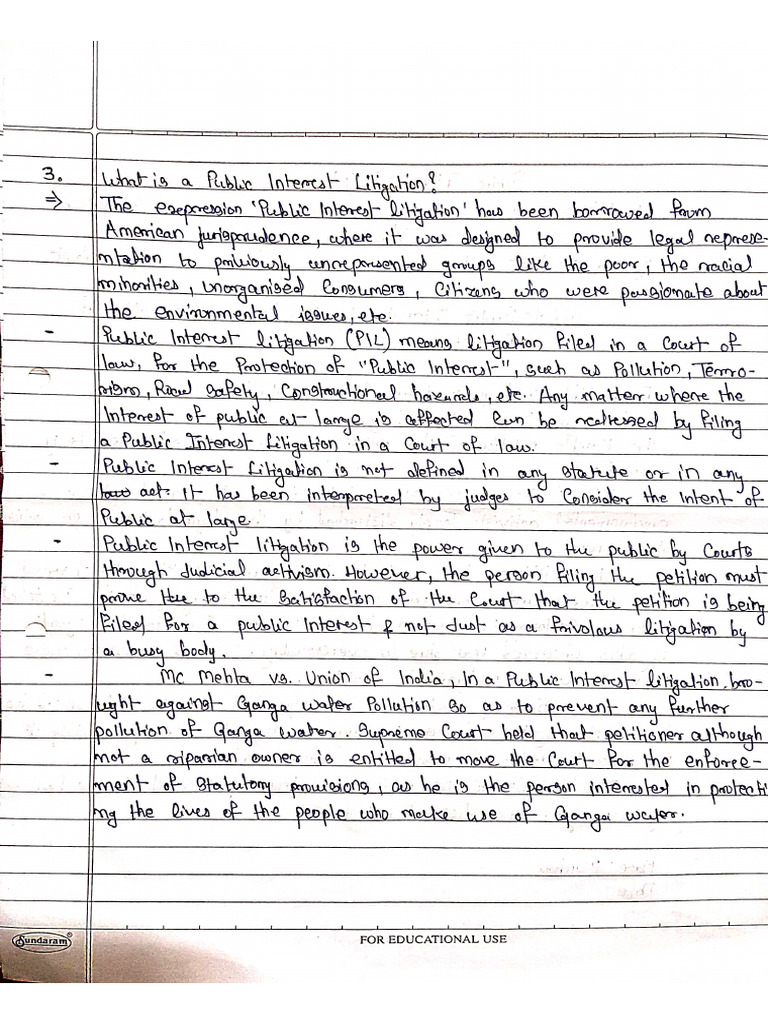 3. What is a Public Interest Litigation?
⇒ The exepression 'Public Interest litigation' has been borrowed from
American jurisprudence, where it was designed to provide legal represe-
ntation to priviously unrepersented groups like the poor, the racial
minorities, unorganised Consumers, Citizens who were passionate about
the environmental issues, etc.
- Public Interest litigation (PIL) means litigation filed in a Court of
law, for the Protection of "Public Interest", such as Pollution, Terro-
rism, Road safety, Constructional hazards, etc. Any matter where the
Interest of public at large is affected can be redressed by filing
a Public Interest Litigation in a Court of law.
- Public Interest Litigation is not defined in any statute or in any
law act. It has been interpreted by judges to Consider the Intent of
Public at large.
- Public Interest litigation is the power given to the public by Courts
through Judicial activism. However, the person filing the petition must
prove to the Satisfaction of the Court that the petition is being
filed for a public Interest & not Just as a frivolous litigation by
a busy body.
- MC Mehta vs. Union of India, In a Public Interest litigation bro-
ught against Ganga water Pollution so as to prevent any further
pollution of Ganga water. Supreme Court held that petitioner although
not a riparian owner is entitled to move the Court for the enforce-
ment of statutory provisions, as he is the person interested in protecti
ng the lives of the people who make use of Ganga water.
Sundaram
FOR EDUCATIONAL USE